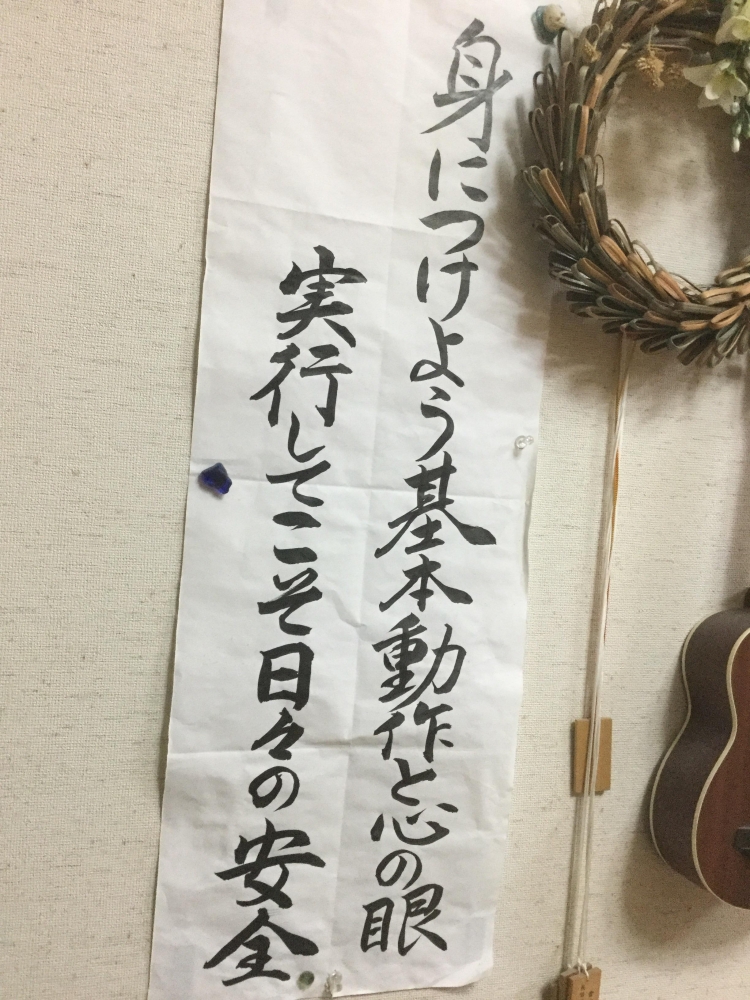 身につけよう基本動作と心の眼
実行してこそ日々の安全